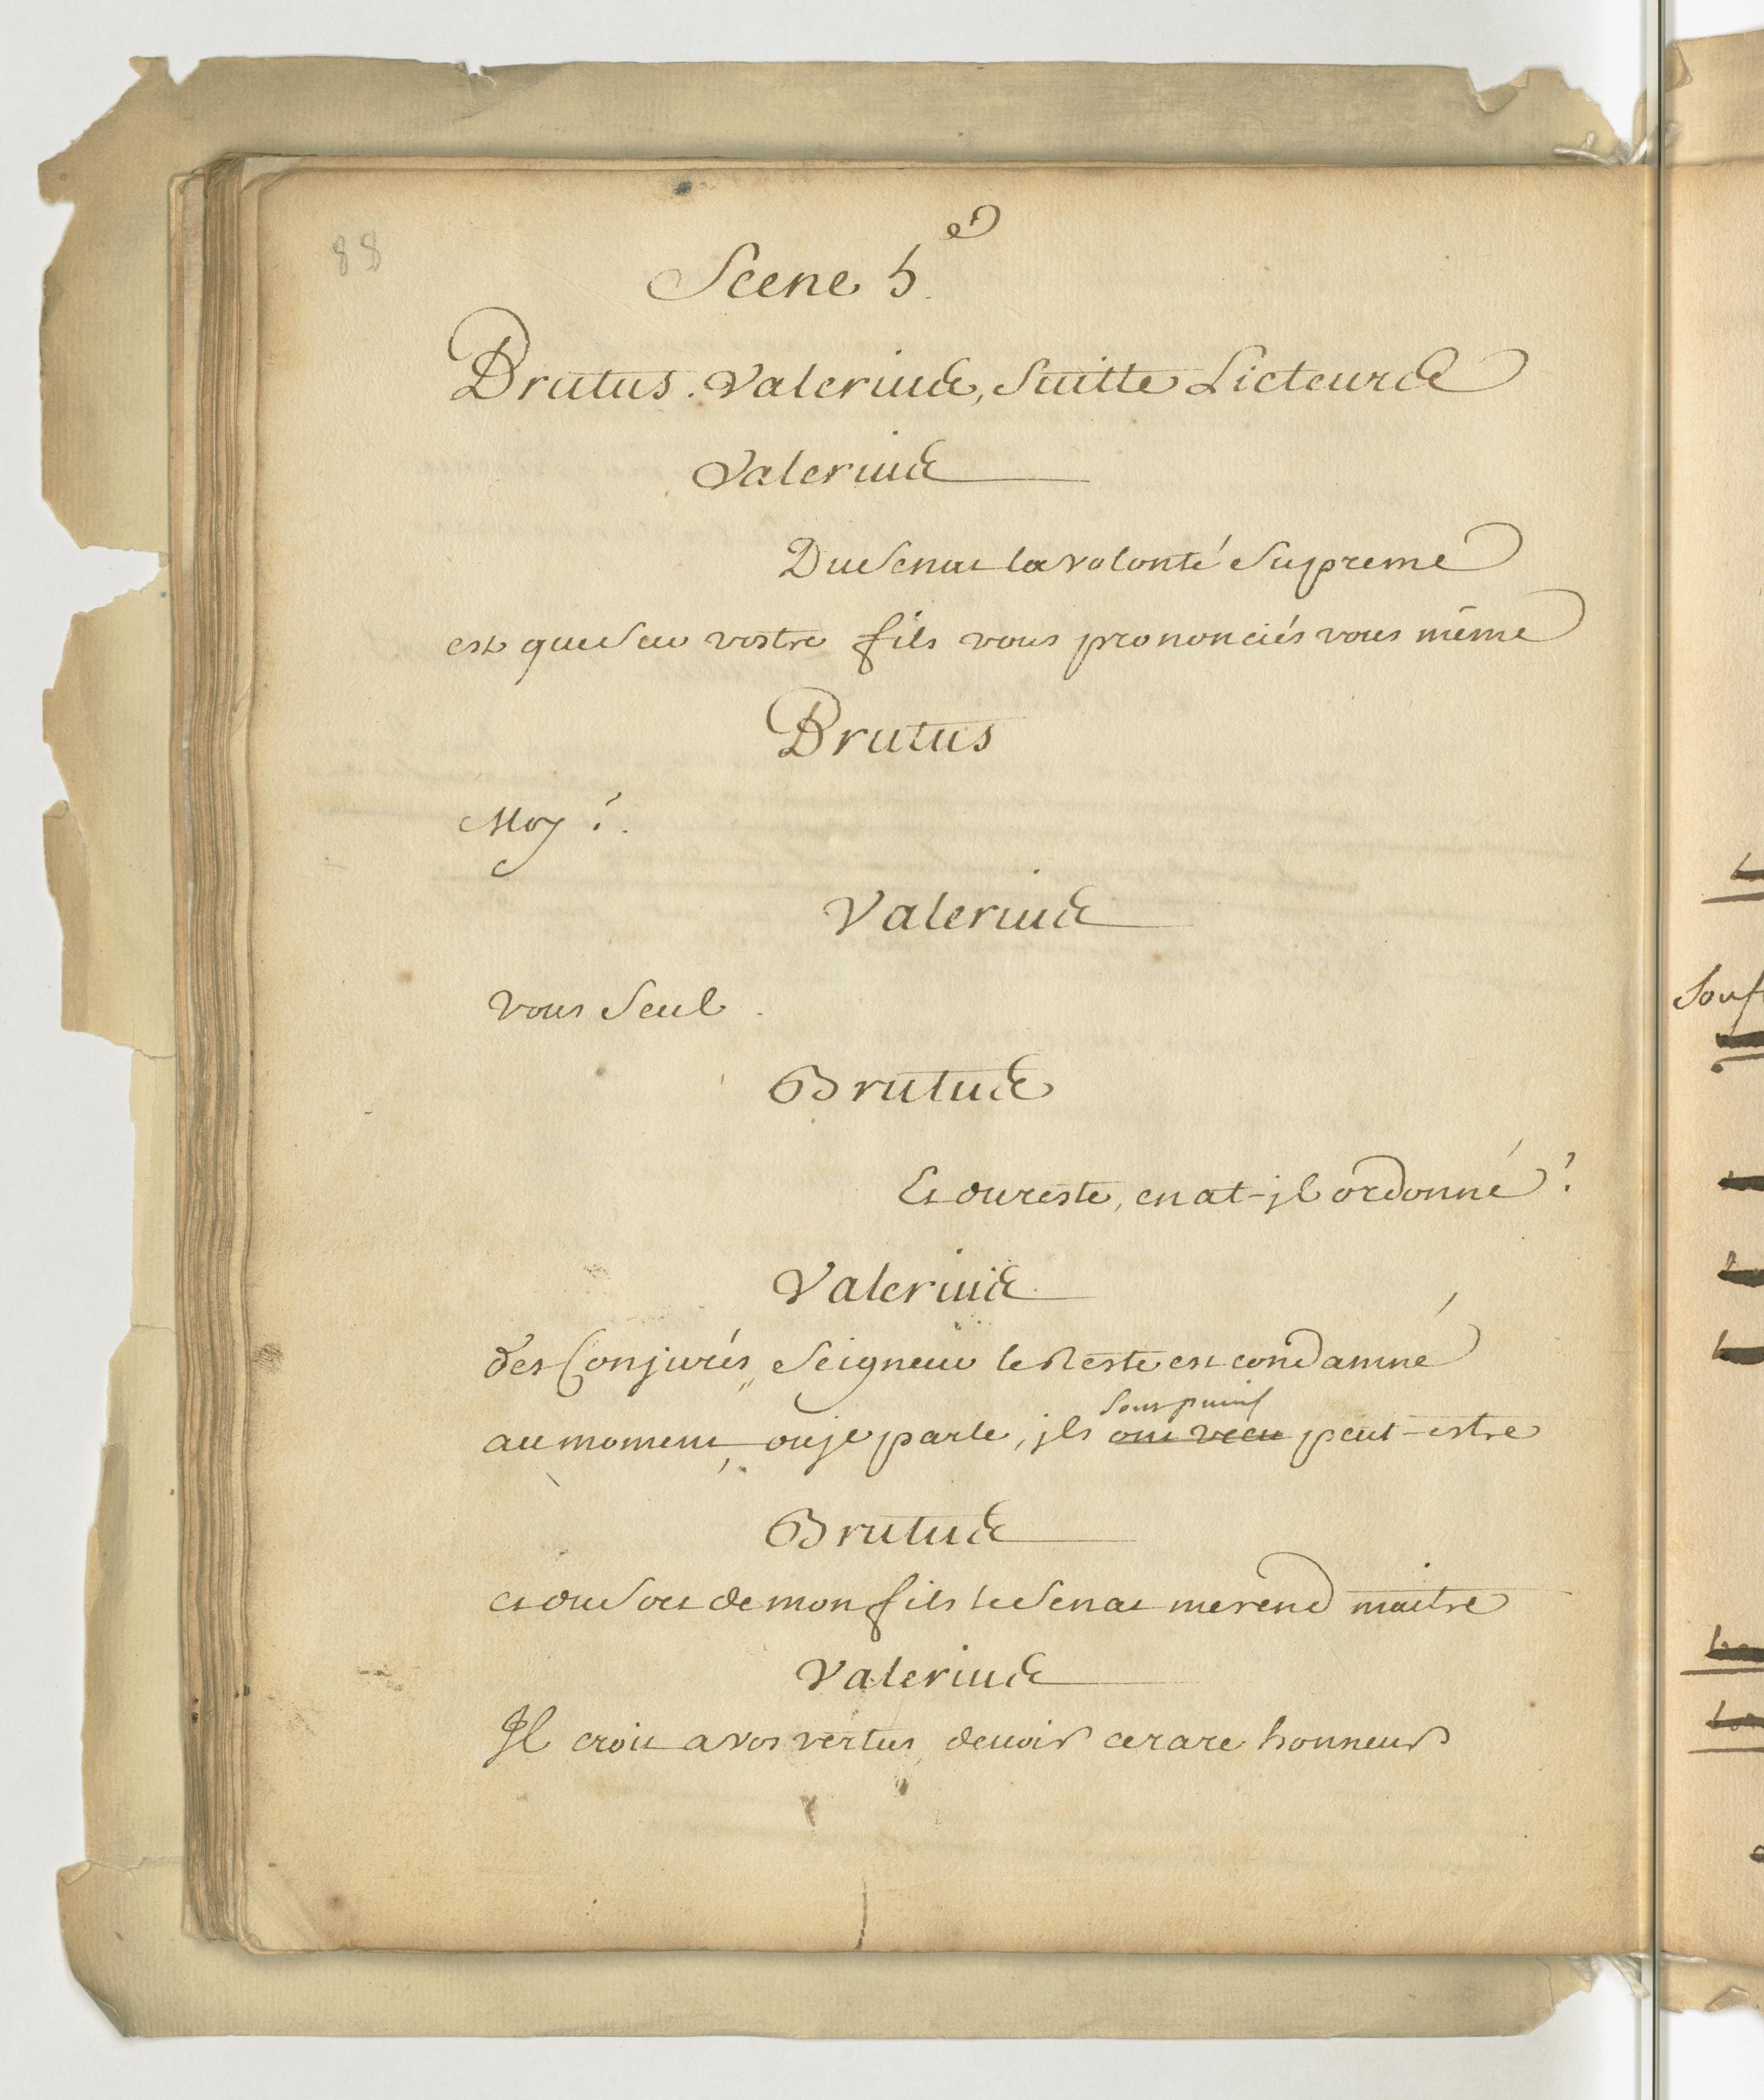 88
Scene 5e
Brutus. Valerius, Suitte Licteurs
Valerius
Du Senat la volonté Supreme
est que sur vostre fils vous prononciés vous même
Brutus
Moy?.
Valerius
vous Seul.
Brutus
Et du reste, en at-jl ordonné?
Valerius
des Conjurés, Seigneur le Reste est condamné
sont punis
au moment, ou je parle, jls ont vecu peut-estre
Brutus
et du sort de mon fils le Senat me rend maitre
Valerius
Il croit a vos vertus devoir ce rare honneur
Souf